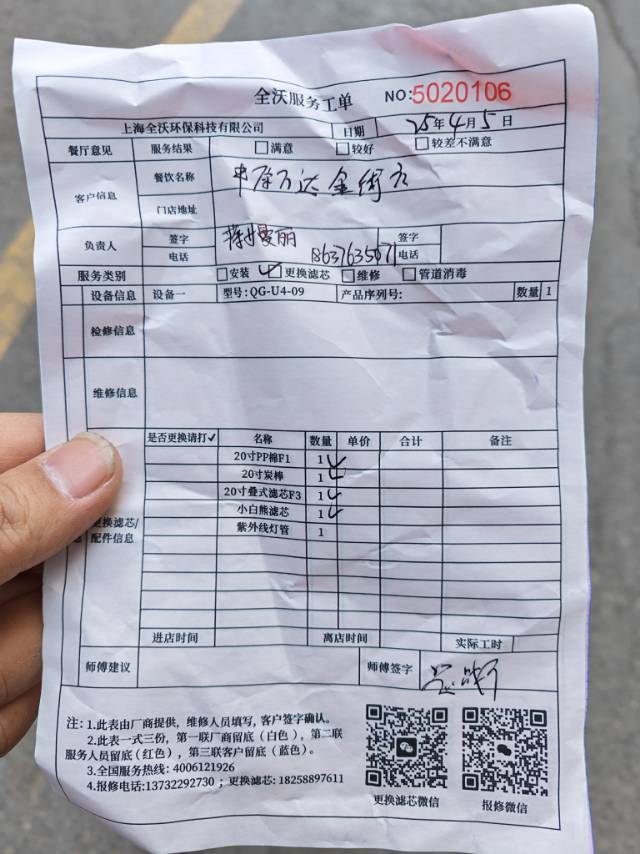 全沃服务工单 NO:5020106
上海全沃环保科技有限公司 日期 25年4月5日
餐厅意见 服务结果 满意 较好 较差不满意
客户信息 餐饮名称 万达金街店
门店地址
负责人 签字 蒋曼丽 签字
电话 18637635671 电话
服务类别 安装 更换滤芯 维修 管道消毒
设备信息 设备一 型号: QG-U4-09 产品序列号: 数量 1
检修信息
维修信息
是否更换请打✓ 名称 数量 单价 合计 备注
20寸PP棉F1 1 ✓
20寸炭棒 1 ✓
20寸叠式滤芯F3 1 ✓
小白熊滤芯 1 ✓
紫外线灯管 1
更换滤芯/
配件信息
进店时间 离店时间 实际工时
师傅建议 师傅签字
注: 1.此表由厂商提供, 维修人员填写, 客户签字确认。
2.此表一式三份, 第一联厂商留底 (白色), 第二联
服务人员留底 (红色), 第三联客户留底 (蓝色)。
3.全国服务热线: 4006121926
4.报修电话:13732292730 ; 更换滤芯: 18258897611
更换滤芯微信 报修微信